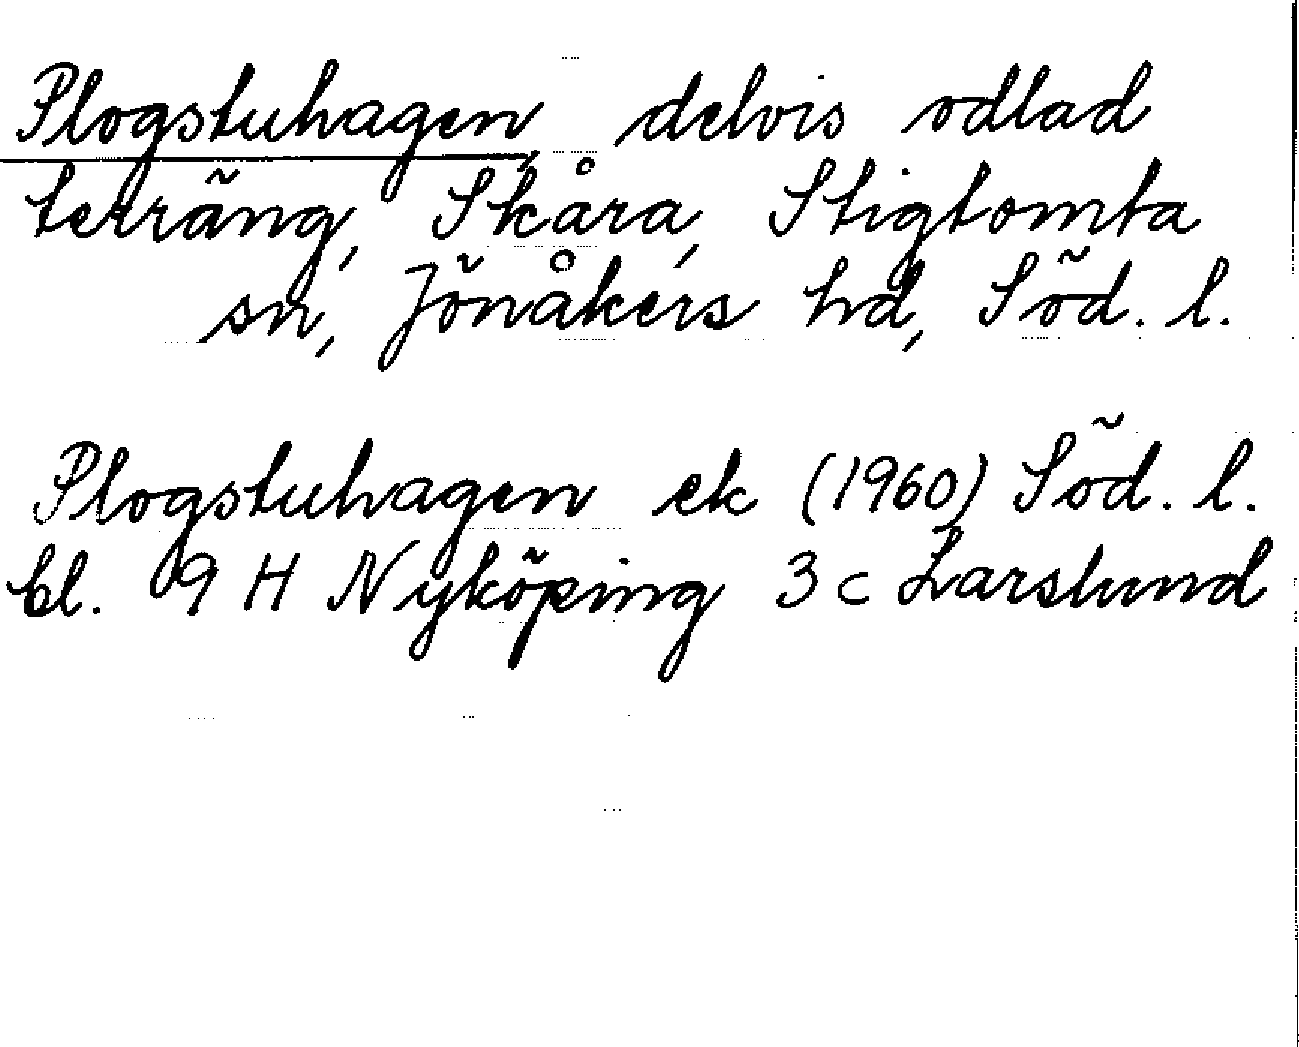 Plogstuhagen, delvis odlad
terräng, Skåra, Stigtomta
sn, Jönåkers hd, Söd. l.
Plogstuhagen ek (1960) Söd. l.
bl. 9 H Nyköping 3 c Larslund